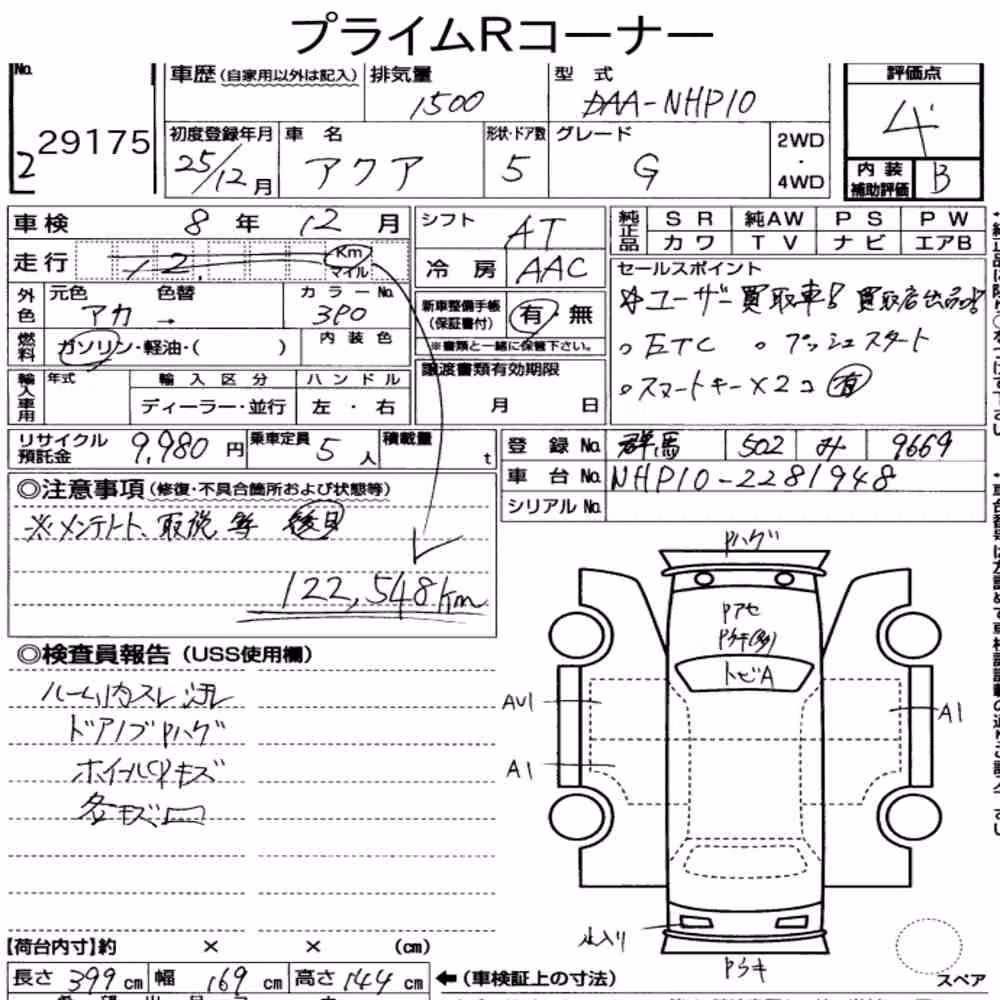 プライムRコーナー
No. 2 29175
車歴(自家用以外は記入) 排気量 1500 型式 DAA-NHP10 評価点 4
初度登録年月 25/12月 車名 アクア 形状・ドア数 5 グレード G 2WD・4WD 内装補助評価 B
車検 8年 12月 シフト AT 純正品 SR 純AW PS PW
カワ TV ナビ エアB
走行 12, Km マイル 冷房 AAC
セールスポイント
外色 元色 アカ 色替 → カラーNo. 3P0 新車整備手帳(保証書付) 有・無
※書類と一緒に保管下さい。
※ユーザー買取車! 買取店出品!
。ETC 。プッシュスタート
。スマートキー×2コ 有
燃料 ガソリン・軽油・( ) 内装色
譲渡書類有効期限
月 日
輸入車用 年式 輸入区分 ハンドル
ディーラー・並行 左・右
リサイクル預託金 9,980円 乗車定員 5人 積載量 t
登録No. 群馬 502 み 9669
車台No. NHP10-2281948
シリアルNo.
◎注意事項(修復・不具合箇所および状態等)
※メンテノート、取説等 後日
122,548km
◎検査員報告(USS使用欄)
ルーム内スレ 汚レ
ドアノブPハゲ
ホイールCPキズ
各キズ凹
Pハゲ
Pアセ
Pキ(多)
トビA
AU1
A1
A1
Pキ
スペア
【荷台内寸】約 × × (cm)
長さ 399cm 幅 169cm 高さ 144cm ←(車検証上の寸法)